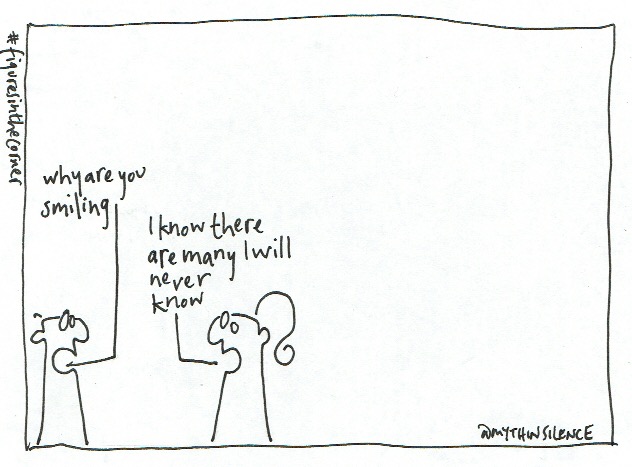 #figuresinthecorner
why are you
smiling
I know there
are many I will
never
know
@MYTHINSILENCE